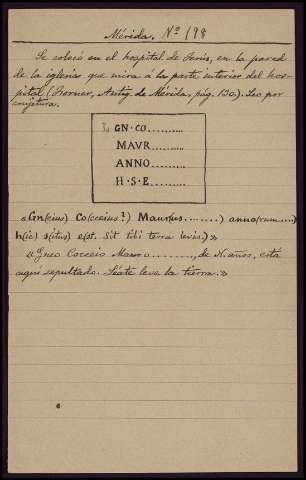 Mérida. Nº 198
Se colocó en el hospital de Jesús, en la pared
de la iglesia que mira á la parte interior del hos-
pital (Forner, Antig. de Mérida, pág. 130). Leo por
conjetura.
L GN·CO..........
MAVR..........
ANNO..........
H·S·E..........
«Gn(eius) Co(cceius?) Maurus........) anno(rum....)
h(ic) s(itus) e(st. Sit tibi terra levis.)»
«Gneo Cocceio Mauro........, de N. años, está
aquí sepultado. Séate leve la tierra.»